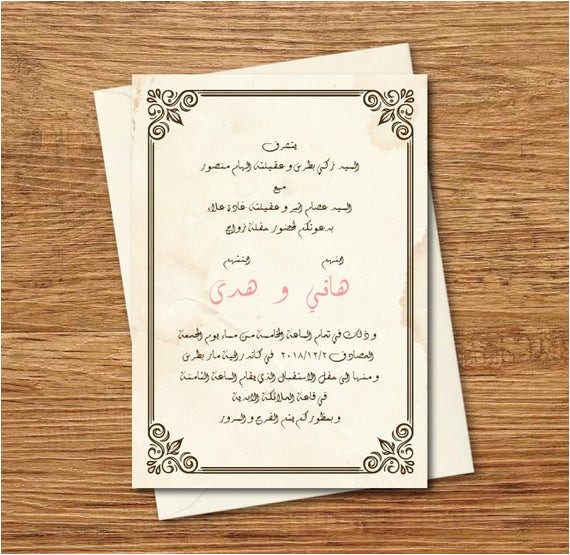 يتشرف
السيد زكي بطرس وعقيلته الهام منصور
مع
السيد عصام البير وعقيلته غادة علاء
بدعوتكم لحضور حفلة زواج
ابنهم ابنتهم
هاني و هدى
وذلك في تمام الساعة الخامسة من مساء يوم الجمعة
المصادف ٢٠١٨/١٢/٢ في كاتدرائية مار بطرس
ومنها الى حفل الاستقبال الذي يقام الساعة الثامنة
في قاعة الملائكة الابدية
وبحضوركم يتم الفرح والسرور